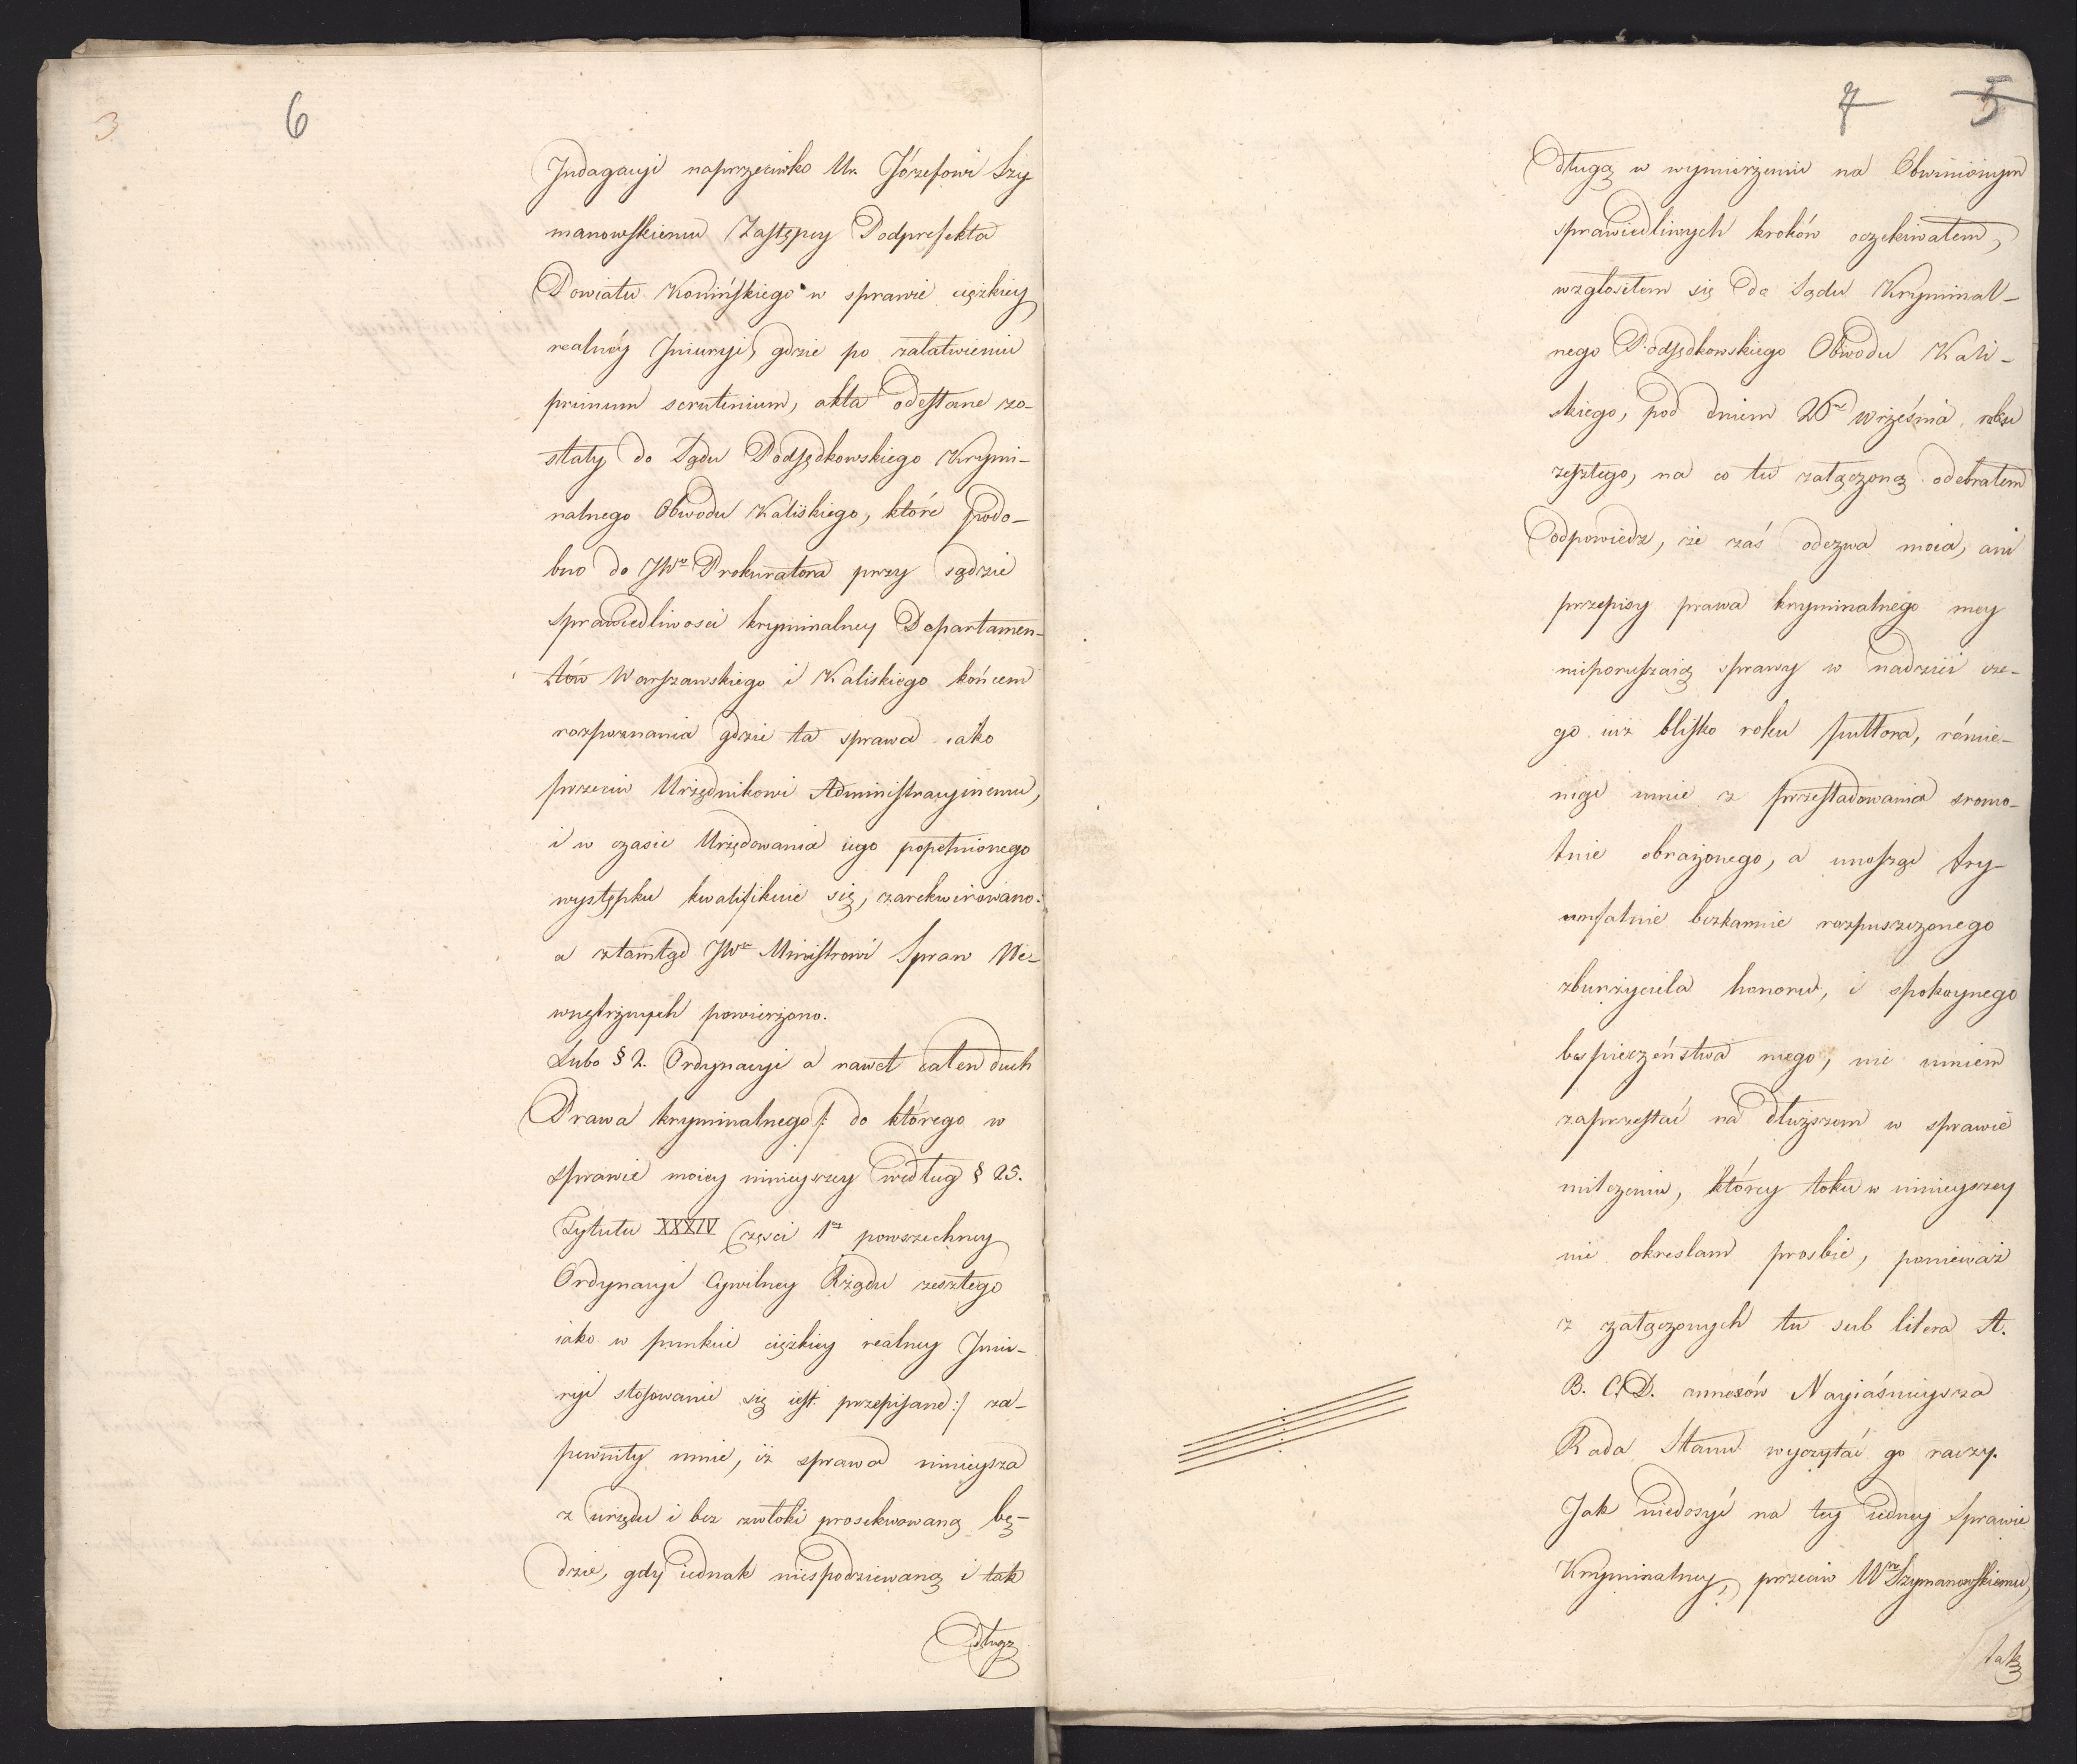 3 6
Indagacyi naprzeciwko Ur. Józefowi Szy
manowskiemu Zastępcy Podprefekta
Powiatu Konińskiego w sprawie cięzkiey
realnéy Iniuryi, gdzie po załatwieniu
primum scrutinium, akta odesłane zo-
stały do Sądu Podsędkowskiego Krymi-
nalnego Obwodu Kaliskiego, które podo-
bno do JWo Prokuratora przy sądzie
sprawiedliwosci kryminalney Departamen-
tów Warszawskiego i Kaliskiego końcem
rozpoznania gdzie ta sprawa iako
przeciw Urzędnikowi Administracyinemu,
i w czasie Urzędowania iego popełnionego
występku kwalifikuie się, zarekwirowano:
a ztamtąd JWo Ministrowi Spraw We-
wnętrznych powierzono.
Lubo § 2. Ordynacyi a nawet caten duch
Prawa kryminalnego /: do którego w
sprawie moiey ninieyszey według § 25.
Tytułu XXXIV Częsci 1ey powszechney
Ordynacyi Cywilney Rządu zeszłego
iako w punkcie cięzkiey realney Iniu-
ryi stosowanie się iest przepisane :/ za-
pewniły mnie, iż sprawa ninieysza
z urzędu i bez zwłoki prosekwowaną bę-
dzie, gdy iednak niespodziewaną i tak
długą
7 5
długą w wymierzeniu na Obwinionym
sprawiedliwych kroków oczekiwałem,
wzgłosiłem się do Sądu Kryminal-
nego Podsędkowskiego Obwodu Kali-
skiego, pod dniem 26 Września roku
zeszłego, na co tu załączoną odebrałem
odpowiedz, że zaś odezwa moia, ani
przepisy prawa kryminalnego mey
nieporuszaią sprawy w nadziei cze-
go iuż blisko roku puttora, równie-
nige mnie z przesładowania sromo-
tnie obrażonego, a unosząc try-
umfalnie bezkarnie rozpuszczonego
zburzyciela honoru, i spokoynego
bespieczeństwa mego, nie umiem
zaprzestać na dłuższem w sprawie
milczeniu, którey toku w ninieyszey
nie okreslam prosbie, ponieważ
z załączonych tu sub litera A.
B. C. D. annexów Nayiaśnieysza
Rada Stanu wyczytać go raczy.
Jak niedosyć na tey iedney Sprawie
Kryminalney, przeciw Wmu Szymanowskiemu,
tak